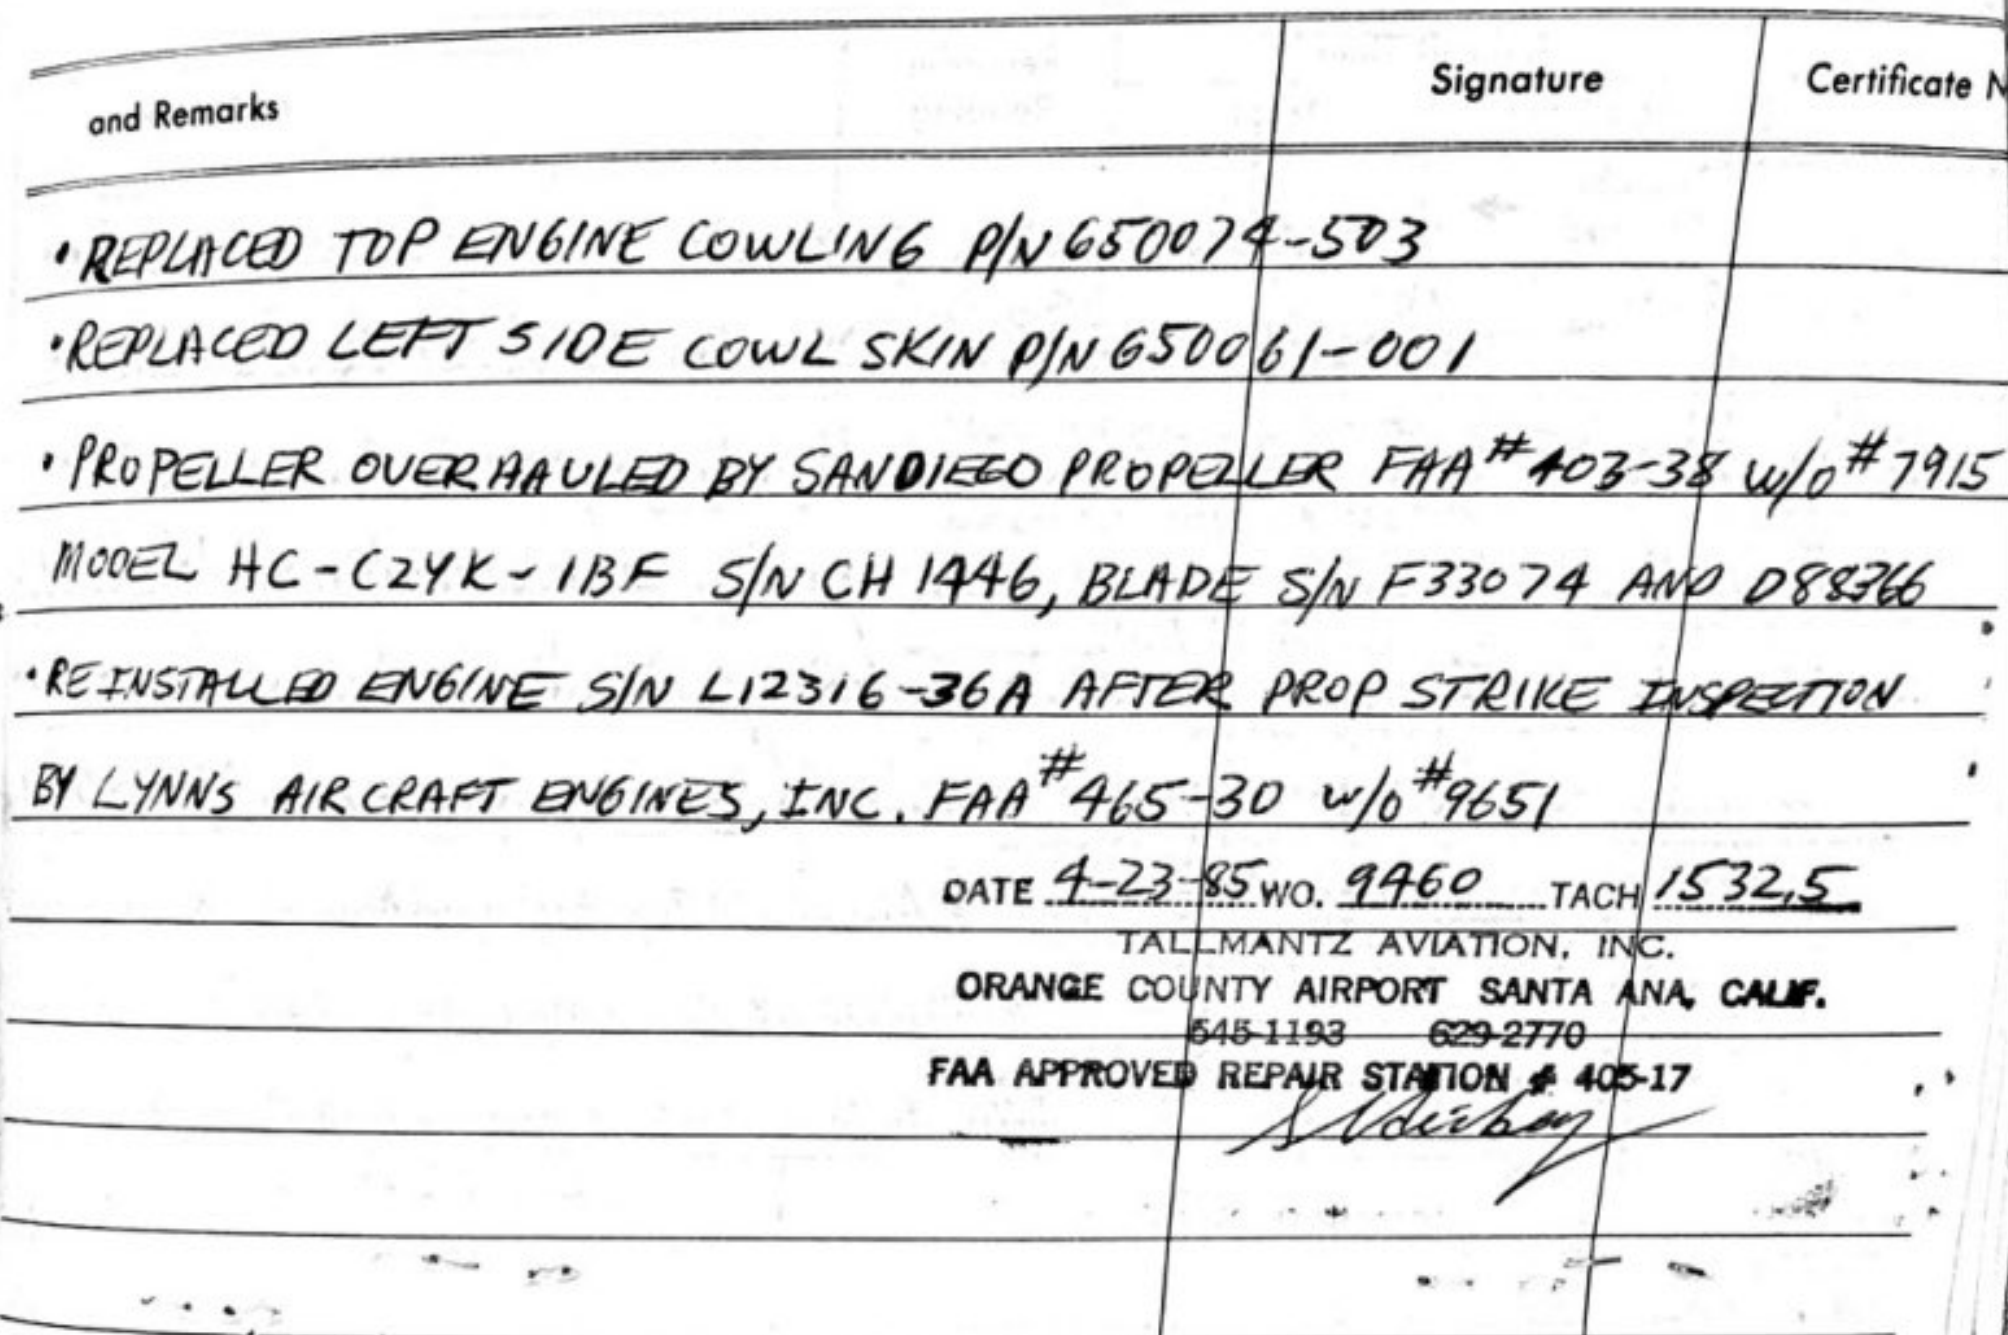 and Remarks Signature Certificate N
•REPLACED TOP ENGINE COWLING P/N 650074-503
•REPLACED LEFT SIDE COWL SKIN P/N 650061-001
•PROPELLER OVERHAULED BY SANDIEGO PROPELLER FAA # 403-38 W/O # 7915
MODEL HC-C2YK-1BF S/N CH 1446, BLADE S/N F33074 AND D88366
•REINSTALLED ENGINE S/N L12316-36A AFTER PROP STRIKE INSPECTION
BY LYNNS AIRCRAFT ENGINES, INC. FAA # 465-30 W/O # 9651
DATE 4-23-85 WO. 9460 TACH 1532.5
TALLMANTZ AVIATION, INC.
ORANGE COUNTY AIRPORT SANTA ANA, CALIF.
545-1193 629-2770
FAA APPROVED REPAIR STATION # 405-17